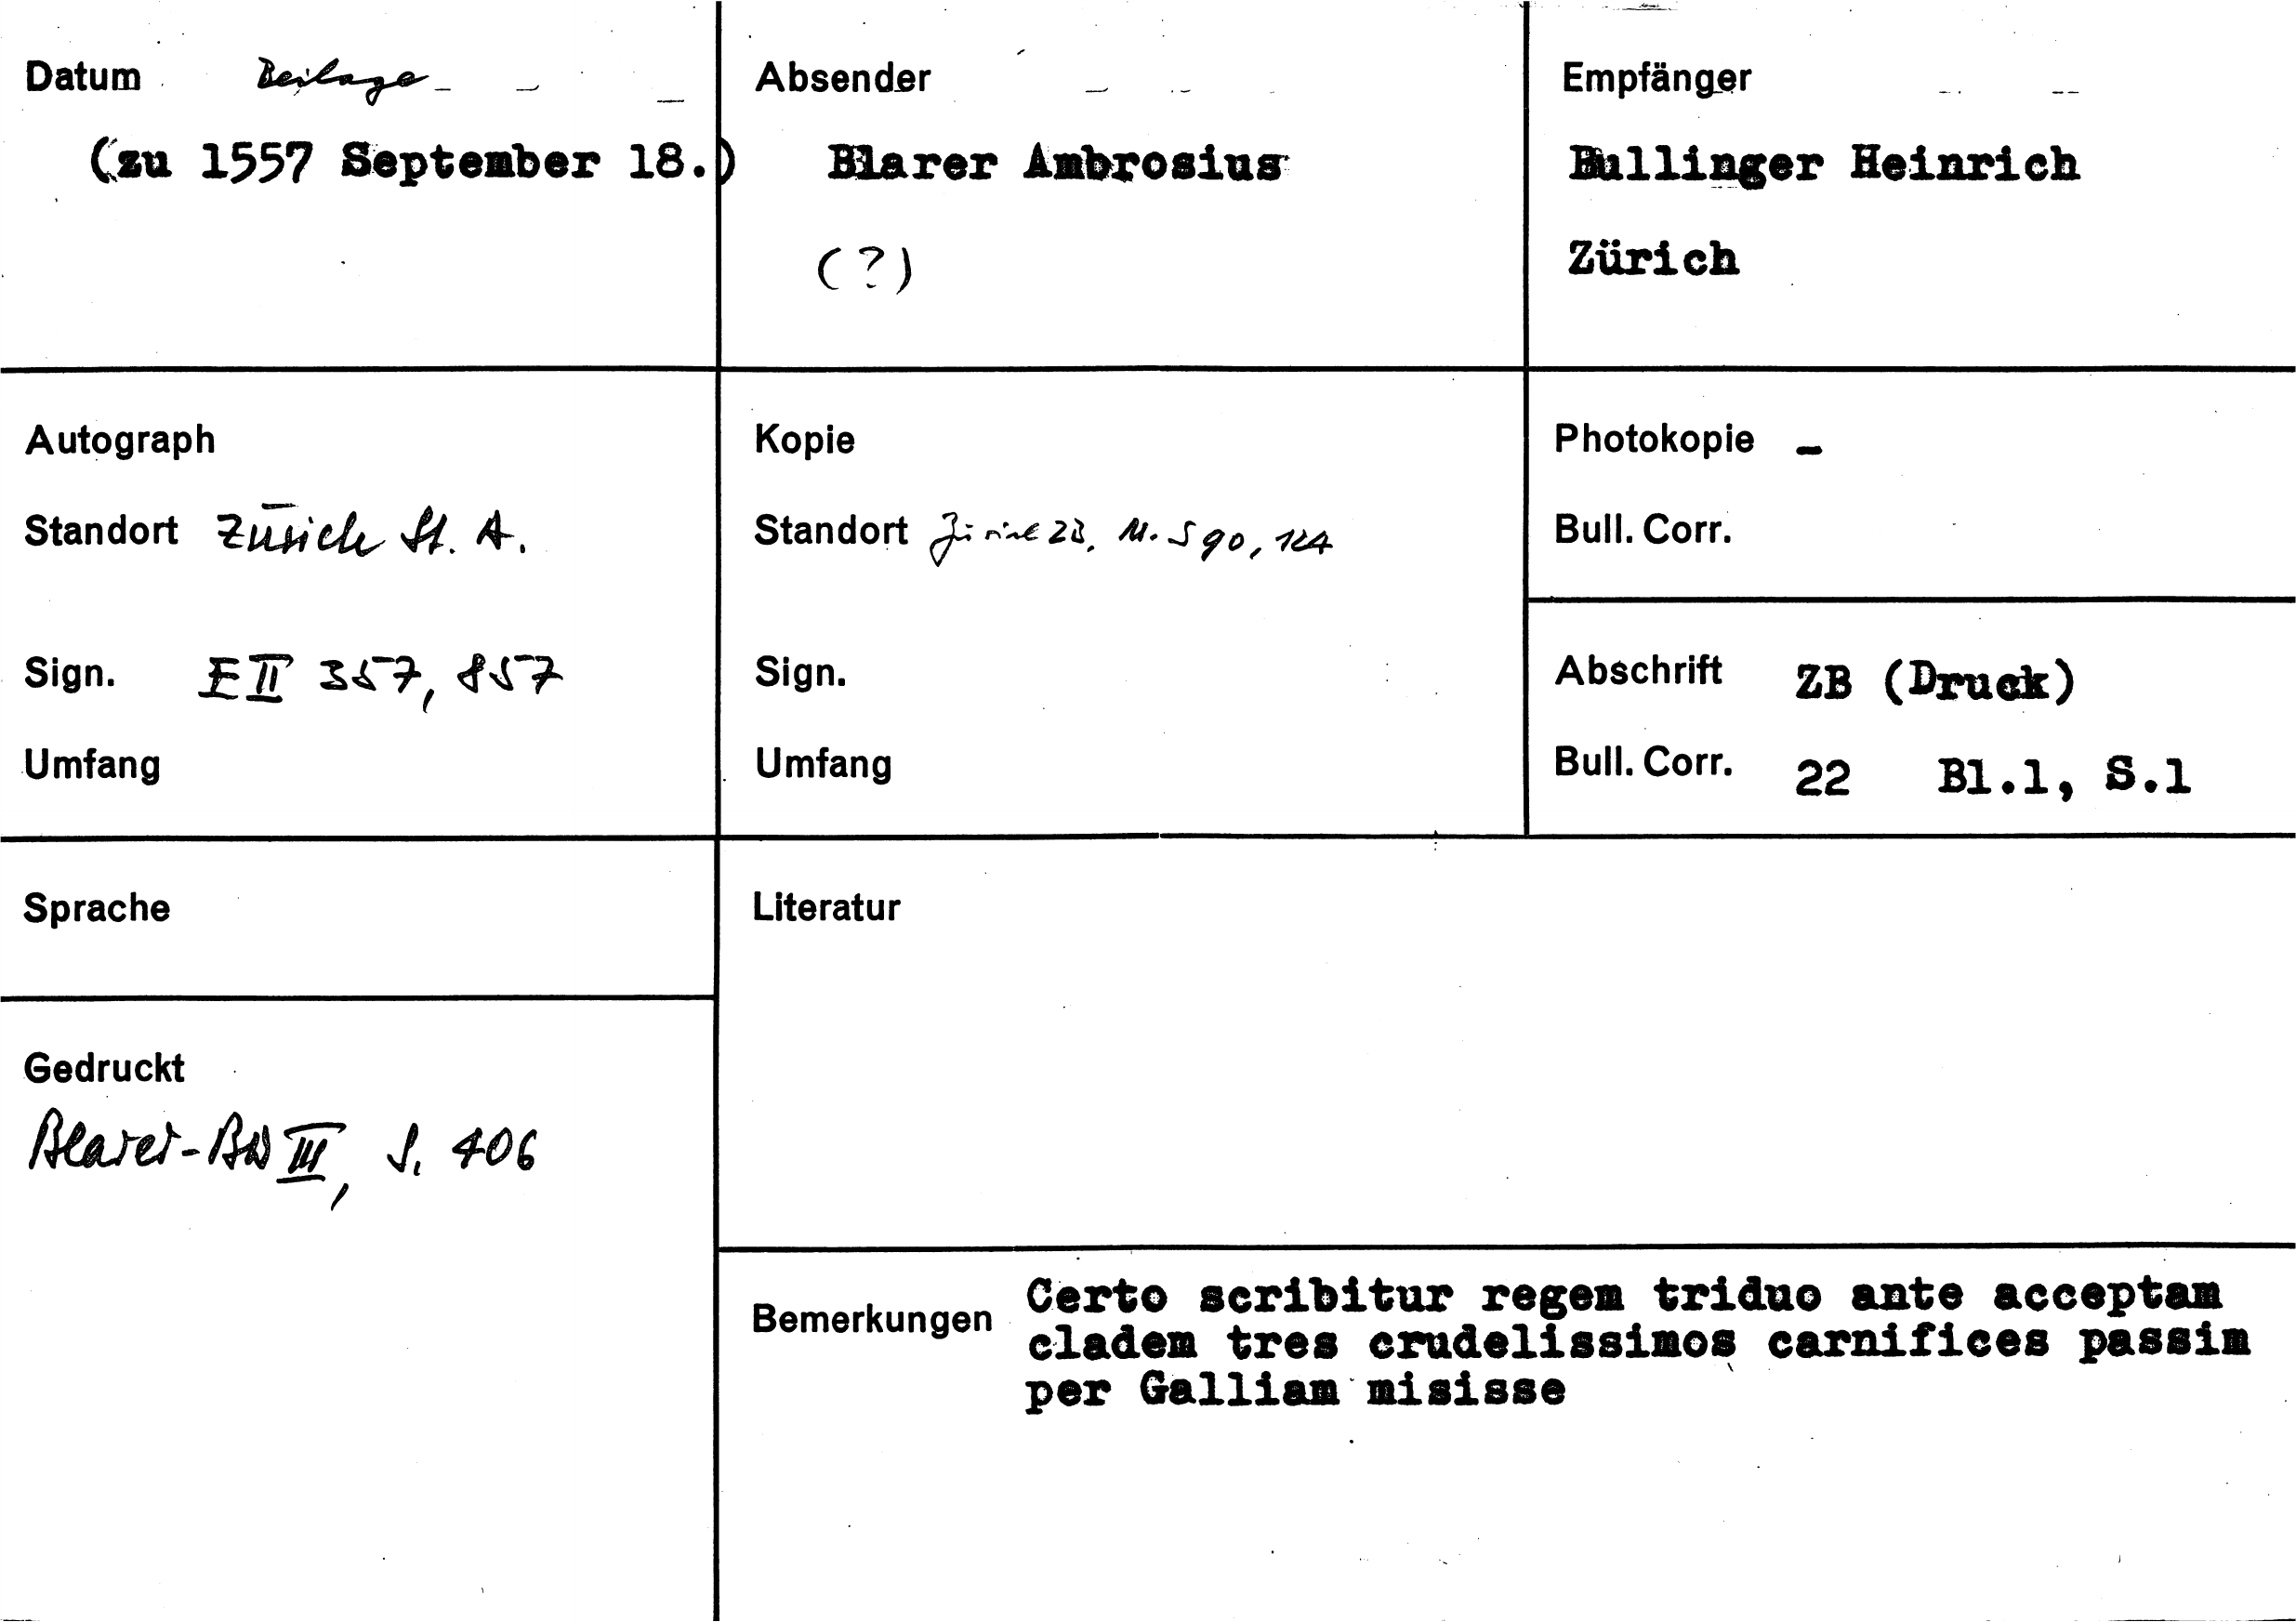 Datum Beilage
(zu 1557 September 18.)
Absender
Blarer Ambrosius
(?)
Empfänger
Bullinger Heinrich
Zürich
Autograph
Standort Zürich St. A.
Sign. E II 357, 857
Umfang
Kopie
Standort Zürich ZB, Ms S 90, 124
Sign.
Umfang
Photokopie -
Bull. Corr.
Abschrift ZB (Druck)
Bull. Corr. 22 Bl.1, S.1
Sprache
Literatur
Gedruckt
Blarer-BW III, S. 406
Bemerkungen Certo scribitur regem triduo ante acceptam
cladem tres crudelissimos carnifices passim
per Galliam misisse